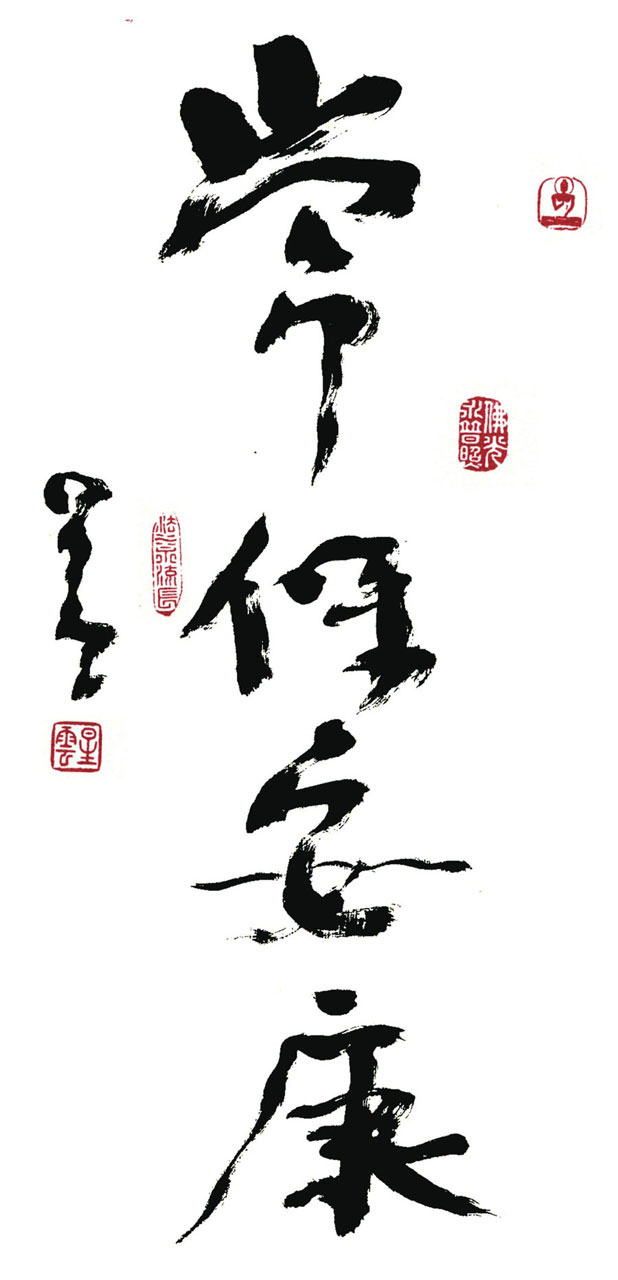 常保安康
佛光永普照
法水流長
星雲
星雲